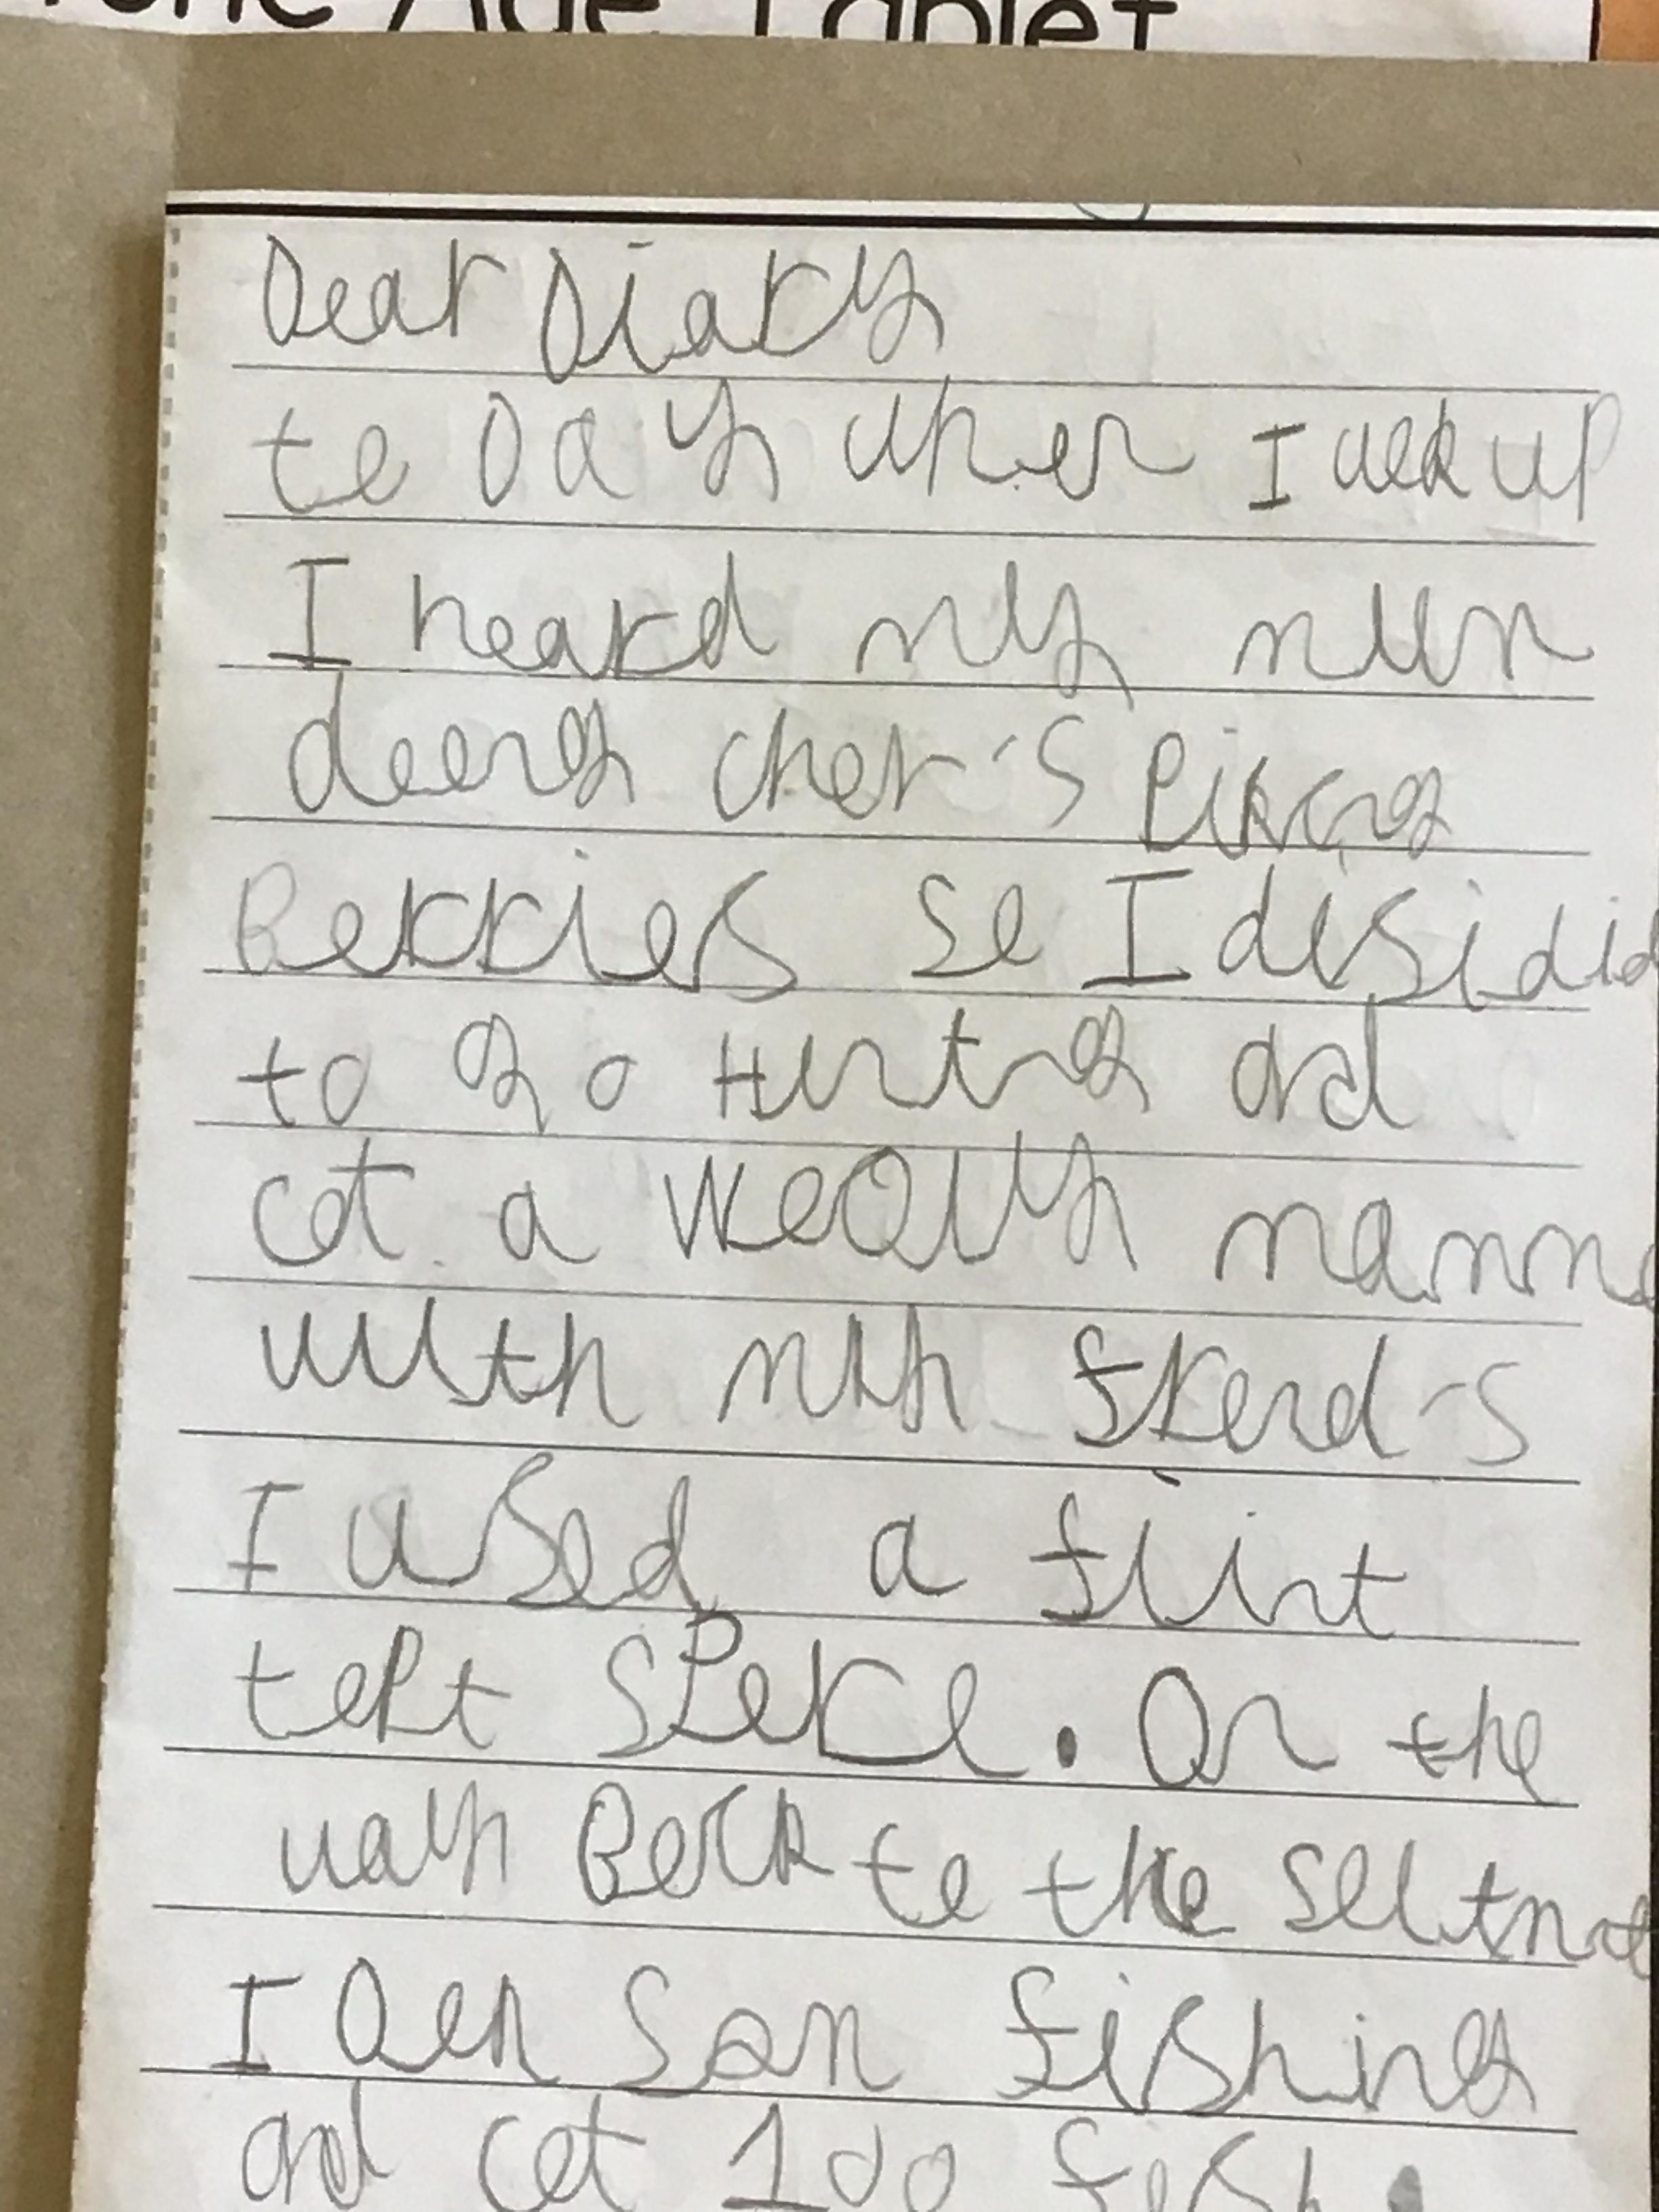 one Age Tablet
Dear Diary
te Day when I wek up
I heard my mum
deeng cher's Piking
Berries se I disidid
to go Hunting and
cat a weolly mamm
with my frend's
I used a flint
tept spere. On the
way Beck te the seltmet
I Den som fishing
and cet 100 fish.